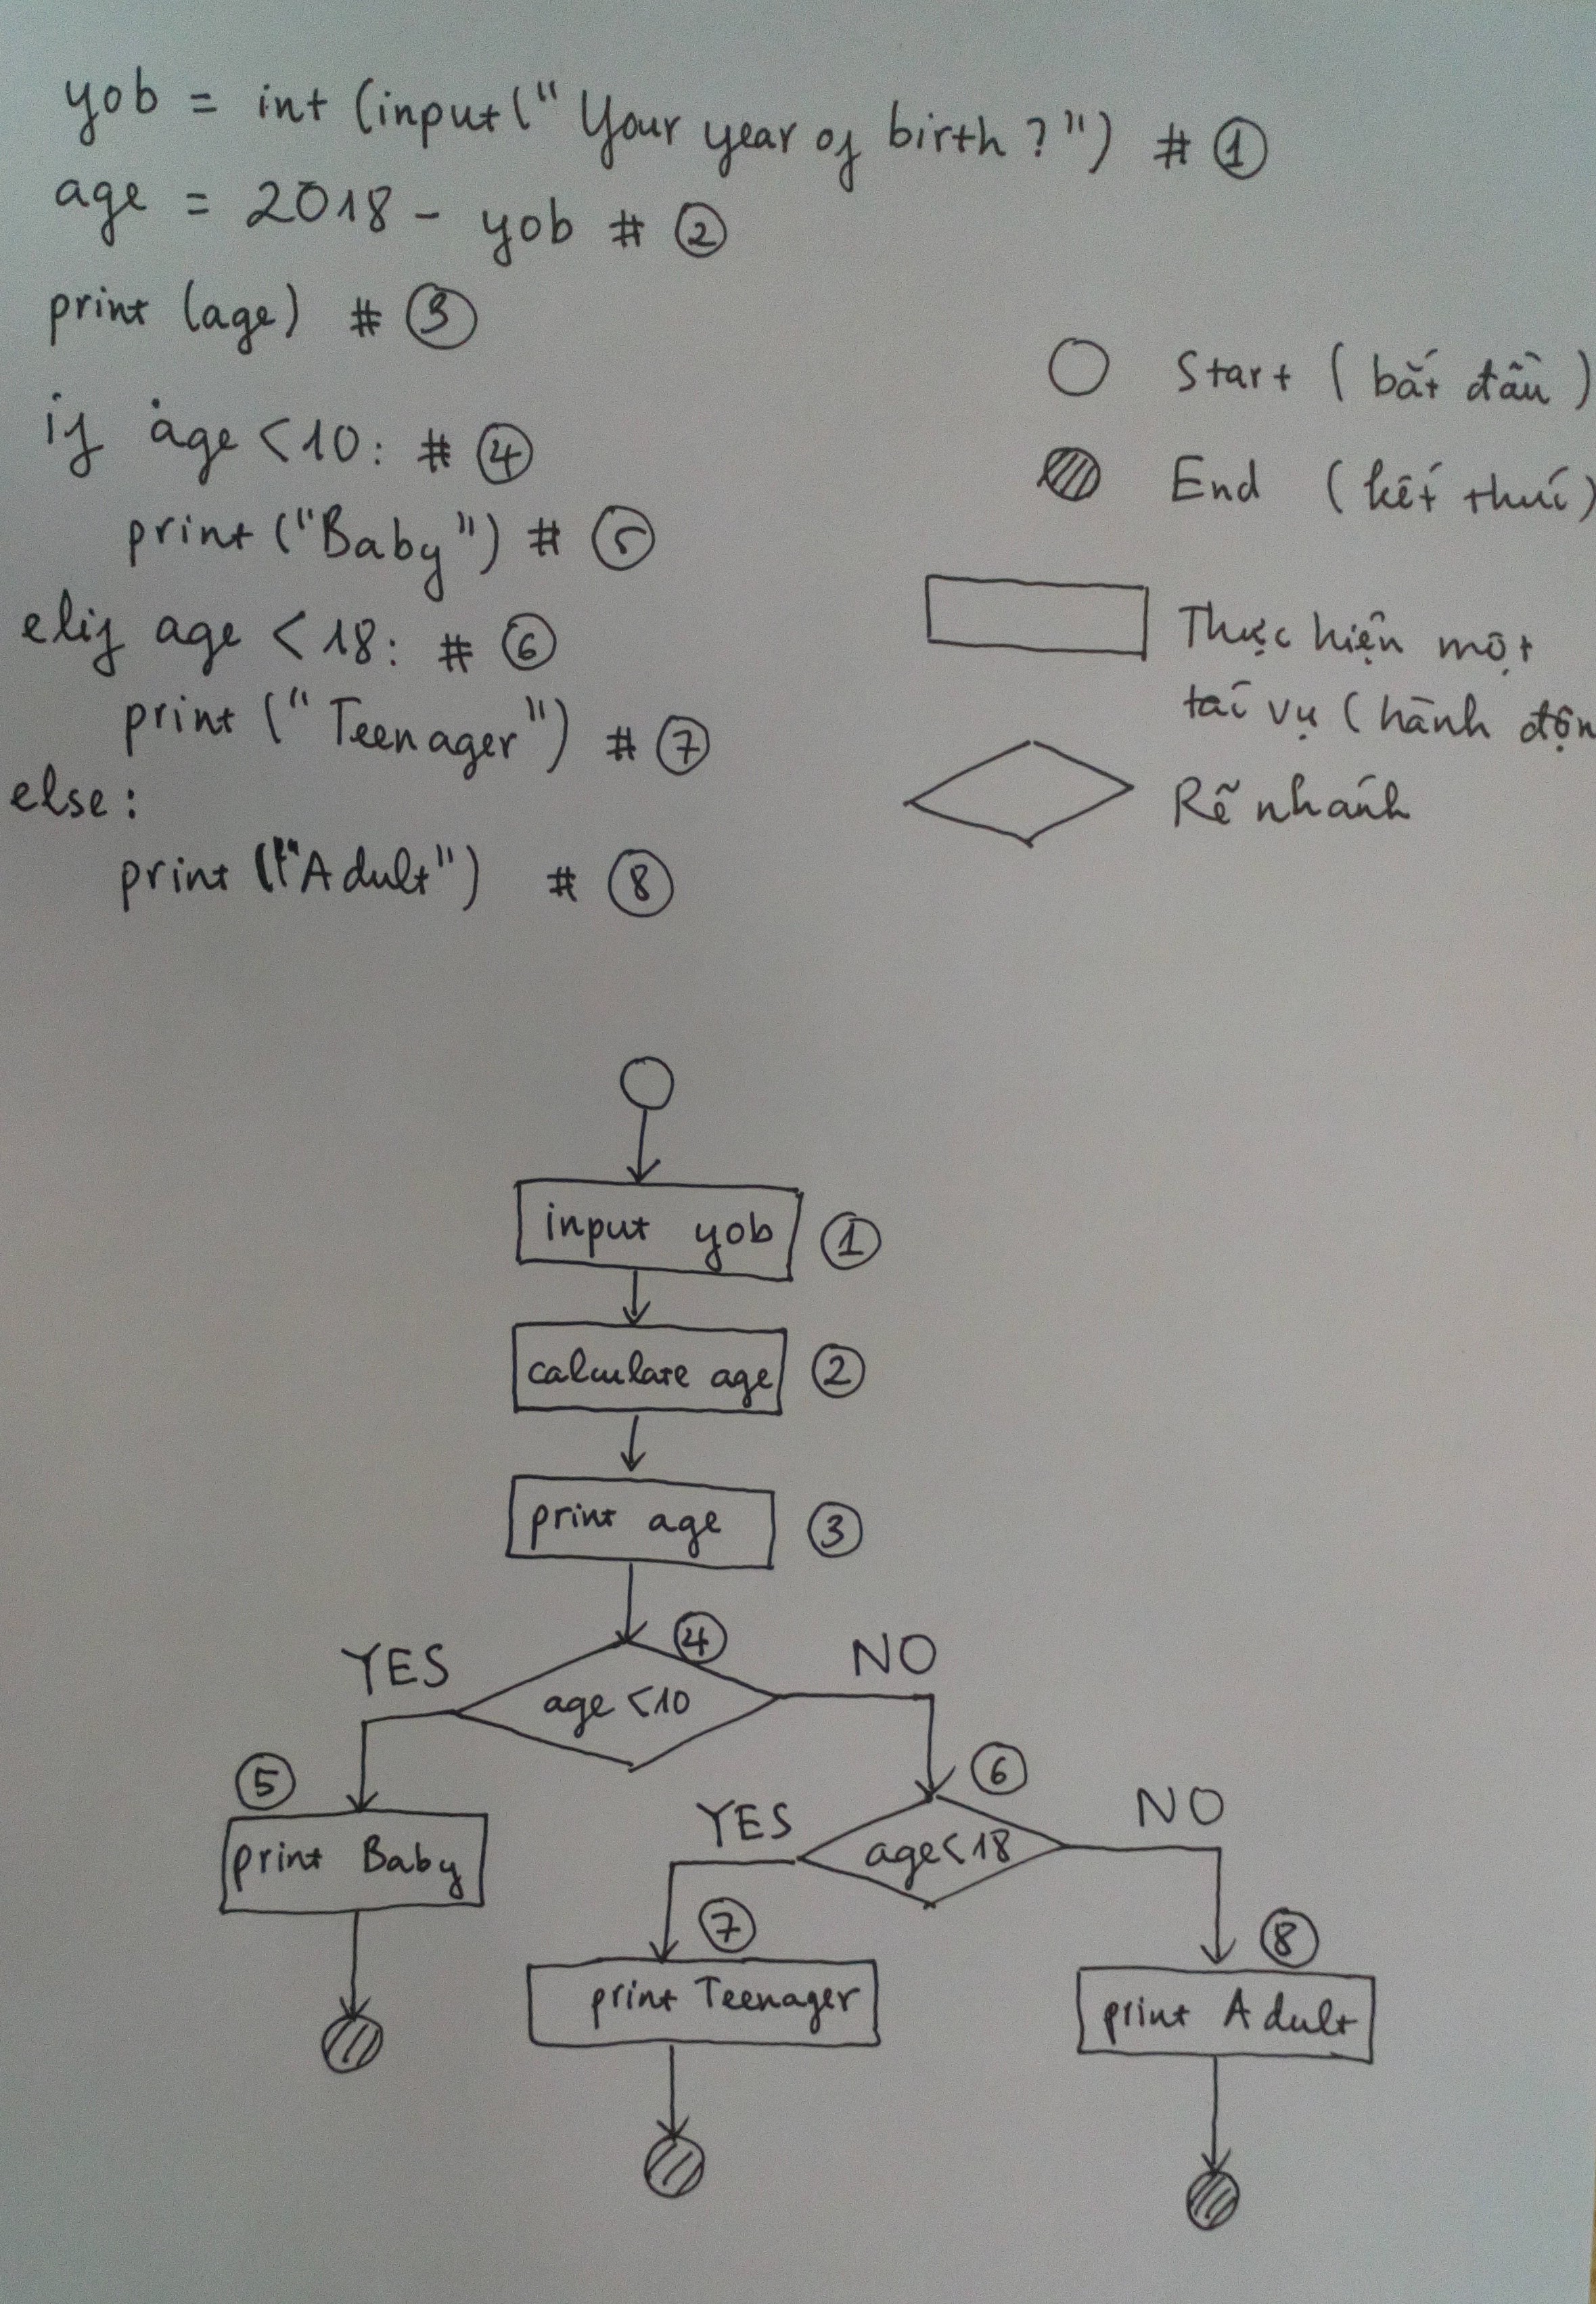 yob = int (input ("Your year of birth ?") # ①
age = 2018 - yob # ②
print (age) # ③
if age < 10: # ④
print ("Baby") # ⑤
elif age < 18: # ⑥
print ("Teenager") # ⑦
else:
print ("Adult") # ⑧
Start (bắt đầu)
End (kết thúc)
Thực hiện một
tác vụ (hành độn
Rẽ nhánh
input yob ①
calculate age ②
print age ③
④
YES NO
age < 10
⑤
print Baby
⑥
YES NO
age < 18
⑦
print Teenager
⑧
print Adult